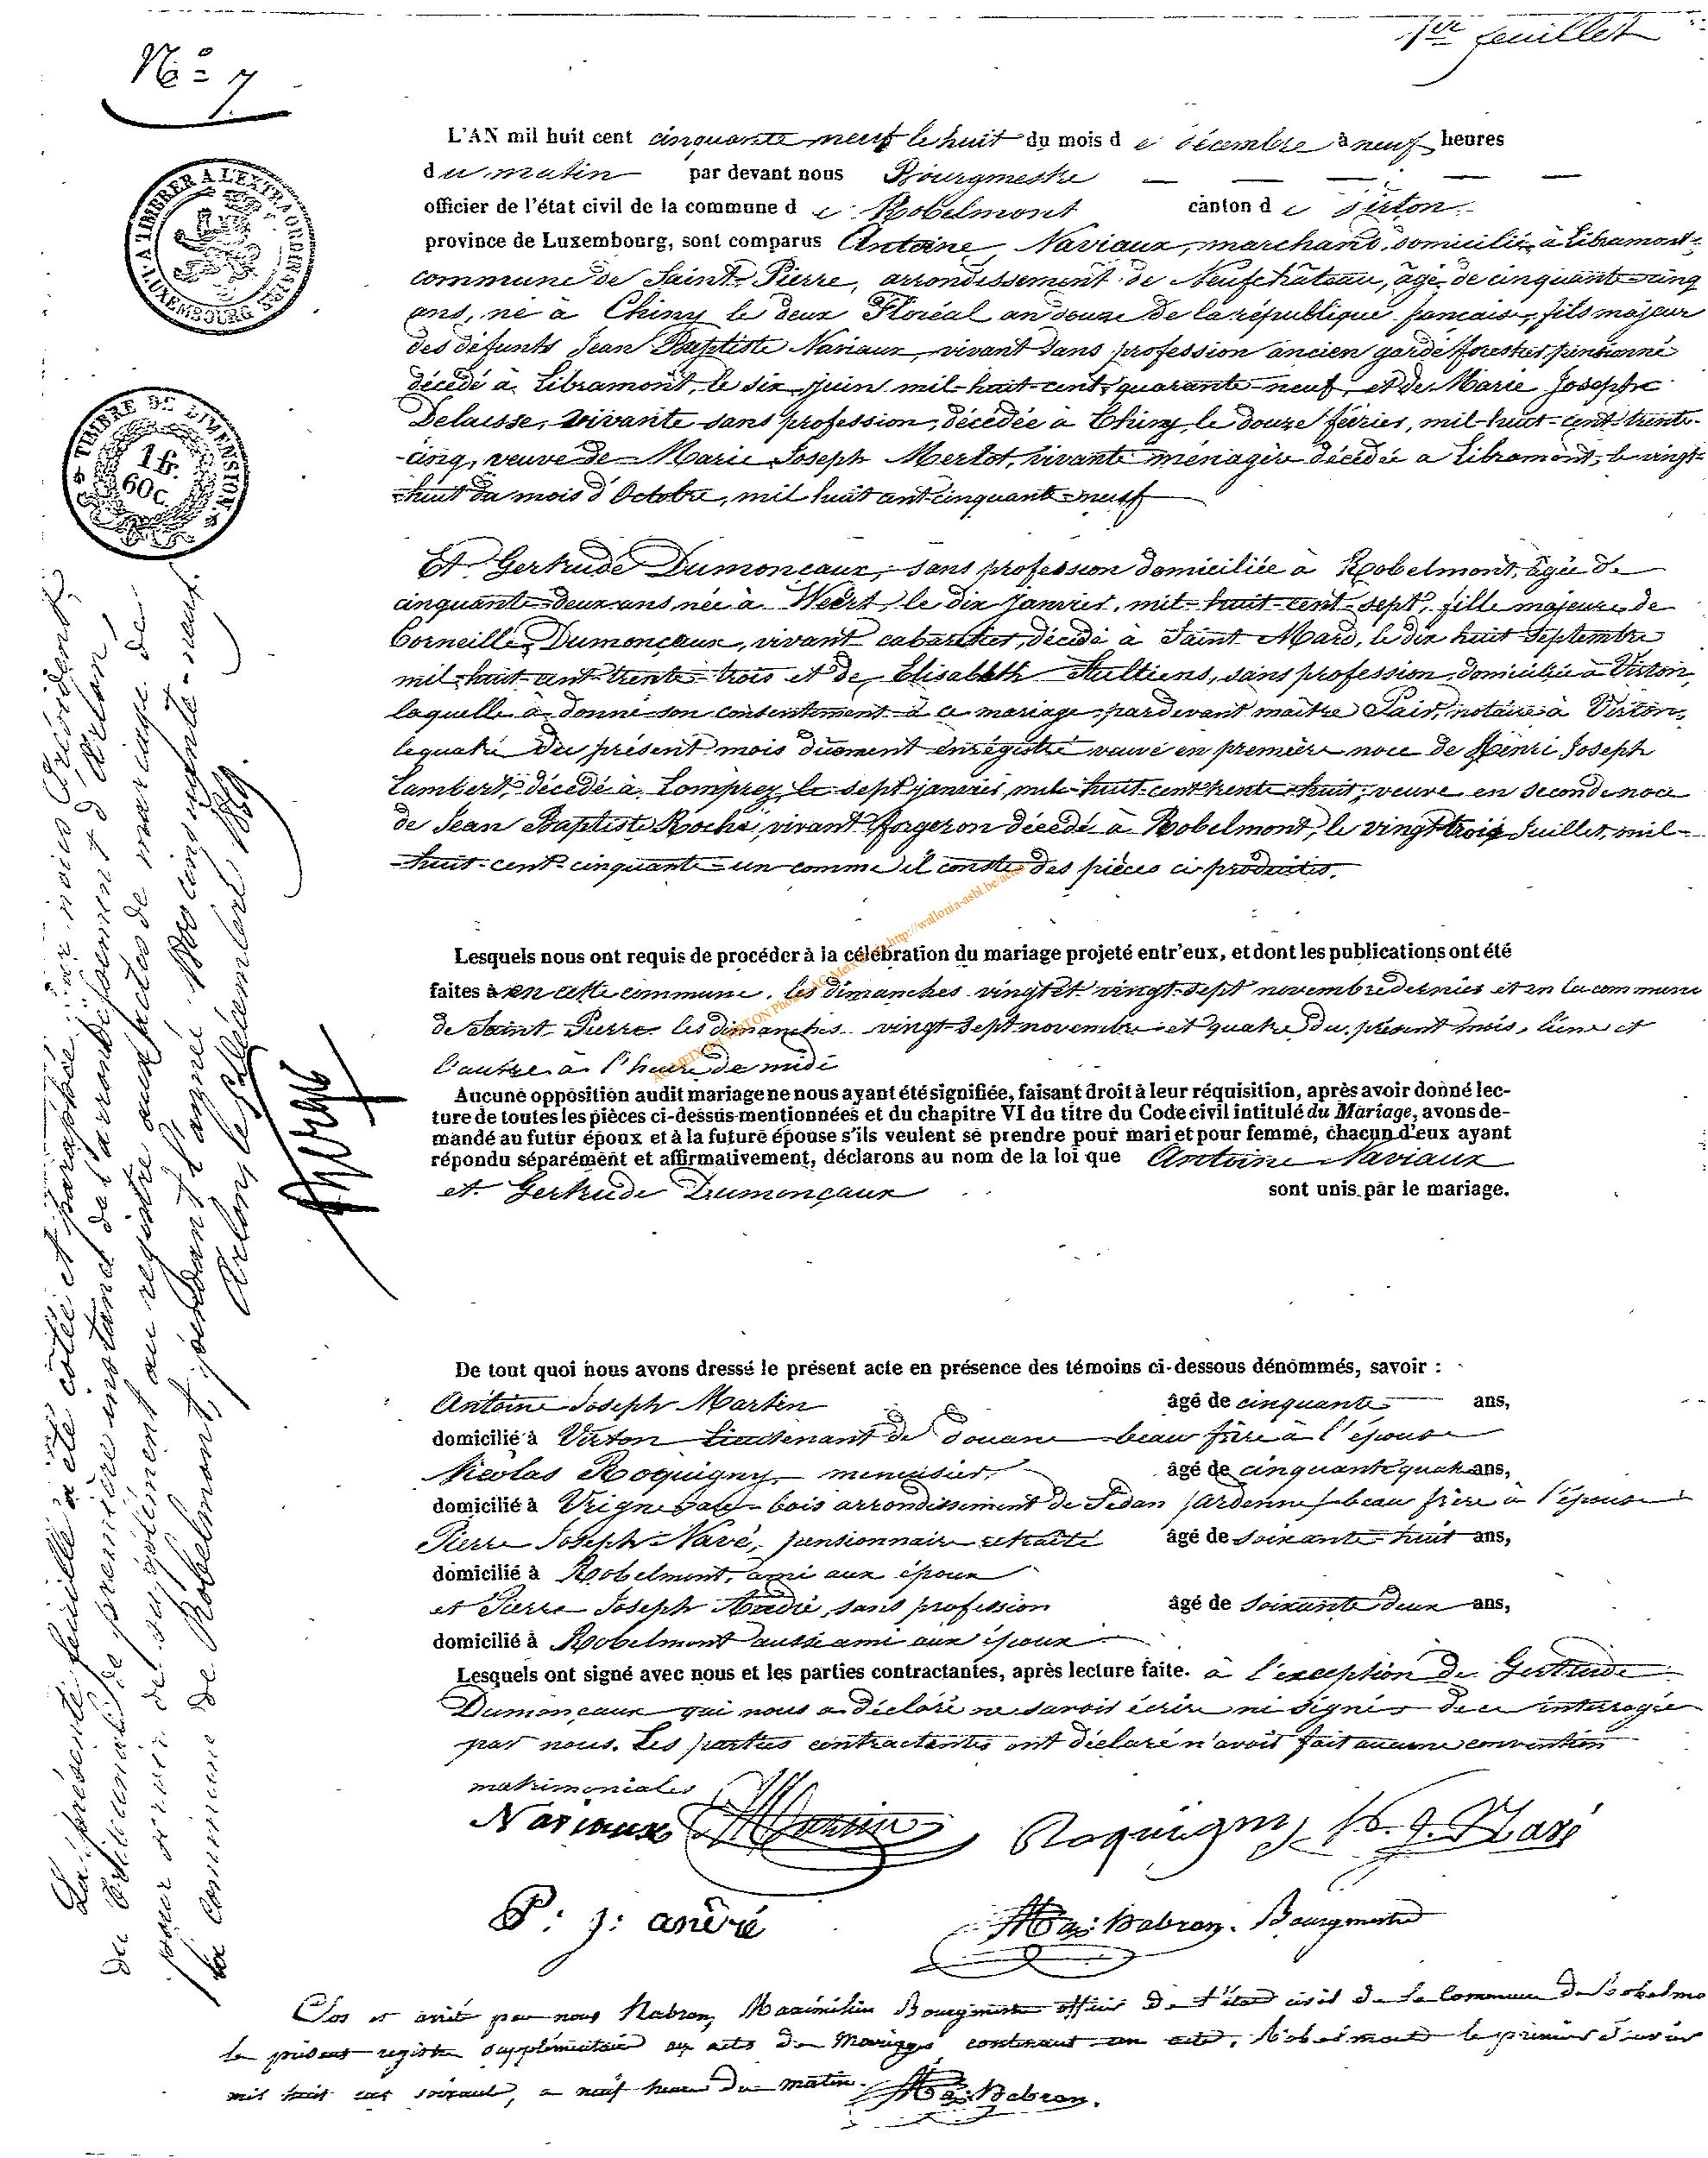 1er feuillet
No = 7
L'AN mil huit cent cinquante neuf le huit du mois de décembre à neuf heures
du matin par devant nous Bourgmestre
officier de l'état civil de la commune de Robelmont canton de Virton
province de Luxembourg, sont comparus Antoine Naviaux, marchand domicilié à Libramont
commune de Saint Pierre, arrondissement de Neufchâteau, âgé de cinquante-cinq
ans, né à Chiny le deux Floréal an douze de la république française, fils majeur
des défunts Jean Baptiste Naviaux, vivant sans profession ancien garde forestier pensionné
décédé à Libramont, le six juin mil-huit-cent, quarante-neuf, et de Marie Josephe
Delaisse, vivante sans profession, décédée à Chiny, le douze février, mil-huit-cent-trente-
cinq, veuve de Marie Joseph Merlot, vivante ménagère décédée a Libramont, le vingt-
huit du mois d'Octobre, mil huit cent cinquante-neuf
Et Gertrude Dumonçaux, sans profession domiciliée à Robelmont, âgée de
cinquante-deux ans née à Weert, le dix janvier, mil-huit-cent-sept, fille majeure de
Corneille Dumonçaux, vivant cabaretier, décédé à Saint Mard, le dix huit Septembre
mil-huit-cent-trente-trois et de Elisabeth Stultiens, sans profession, domiciliée à Virton,
laquelle à donné son consentement à ce mariage pardevant maître notaire à Virton,
le quatre du présent mois dûement enrégistré veuve en première noce de Henri Joseph
Lambert, décédé à Lomprez, le sept janvier, mil-huit-cent trente-huit, veuve en seconde noce
de Jean Baptiste Roché, vivant forgeron décédé à Robelmont, le vingt-trois Juillet, mil-
huit-cent-cinquante-un comme il conste des pièces ci produites.
Lesquels nous ont requis de procéder à la célébration du mariage projeté entr'eux, et dont les publications ont été
faites à en cette commune, les dimanches vingt et vingt-sept novembre dernier et en la commune
de Saint Pierre les dimanches vingt-sept novembre et quatre du présent mois, l'une et
l'autre à l'heure de midi
Aucune opposition audit mariage ne nous ayant été signifiée, faisant droit à leur réquisition, après avoir donné lec-
ture de toutes les pièces ci-dessus mentionnées et du chapitre VI du titre du Code civil intitulé du Mariage, avons de-
mandé au futur époux et à la future épouse s'ils veulent se prendre pour mari et pour femme, chacun d'eux ayant
répondu séparément et affirmativement, déclarons au nom de la loi que Antoine Naviaux
et Gertrude Dumonçaux sont unis par le mariage.
De tout quoi nous avons dressé le présent acte en présence des témoins ci-dessous dénommés, savoir :
Antoine Joseph Martin âgé de cinquante ans,
domicilié à Virton Lieutenant de douane beau frère à l'épouse
Nicolas Roquigny, menuisier, âgé de cinquante quatre ans,
domicilié à Vrigne aux bois arrondissement de Sedan (ardenne) beau frère à l'épouse
Pierre Joseph Navé, pensionnaire retraité âgé de soixante-huit ans,
domicilié à Robelmont, ami aux époux
et Pierre Joseph André, sans profession âgé de soixante deux ans,
domicilié à Robelmont aussi ami aux époux
Lesquels ont signé avec nous et les parties contractantes, après lecture faite. à l'exception de Gertrude
Dumonçaux qui nous a déclaré ne savoir écrire ni signer de ce interrogée
par nous. Les parties contractantes ont déclaré n'avoir fait aucune convention
matrimoniales
Naviaux Martin Roquigny P. J. Navé
P: J: andré
Max: Nabron. Bourgmestre
Clos et arrêté par nous Nabron, Maximilien Bourgmestre officier de l'état civil de la Commune de Robelmo
le présent registre supplémentaire aux actes de Mariages contenant un acte, Robelmont le premier Janvier
mil huit cent soixante, a neuf heures du matin. Max: Nabron.
La présente feuille a été cotée et paraphée par nous Président
du tribunal de première instance de l'arrondissement d'Arlon,
pour servir de supplément au registre aux actes de mariage de
la commune de Robelmont, pendant l'année 1800 cinquante-neuf.
Arlon, le décembre 1859.
TIMBRE DE DIMENSION.
1 fr.
60 c.
A TIMBRER A L'EXTRAORDINAIRE
LUXEMBOURG